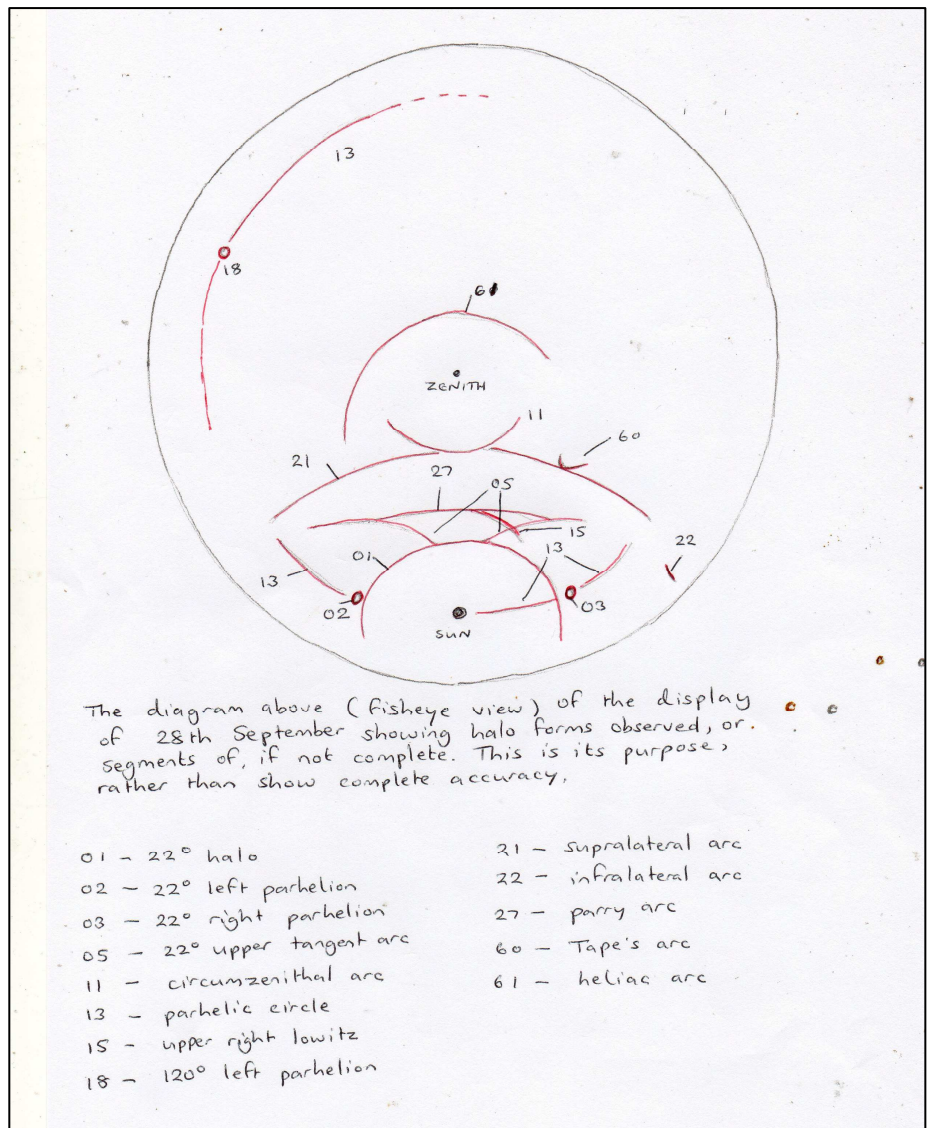 13
18
61
ZENITH
11
60
21
27
05
15
13
22
01
13
02
03
SUN
The diagram above (fisheye view) of the display
of 28th September showing halo forms observed, or
segments of, if not complete. This is its purpose,
rather than show complete accuracy.
01 - 22° halo
02 - 22° left parhelion
03 - 22° right parhelion
05 - 22° upper tangent arc
11 - circumzenithal arc
13 - parhelic circle
15 - upper right lowitz
18 - 120° left parhelion
21 - supralateral arc
22 - infralateral arc
27 - parry arc
60 - Tape's arc
61 - heliac arc